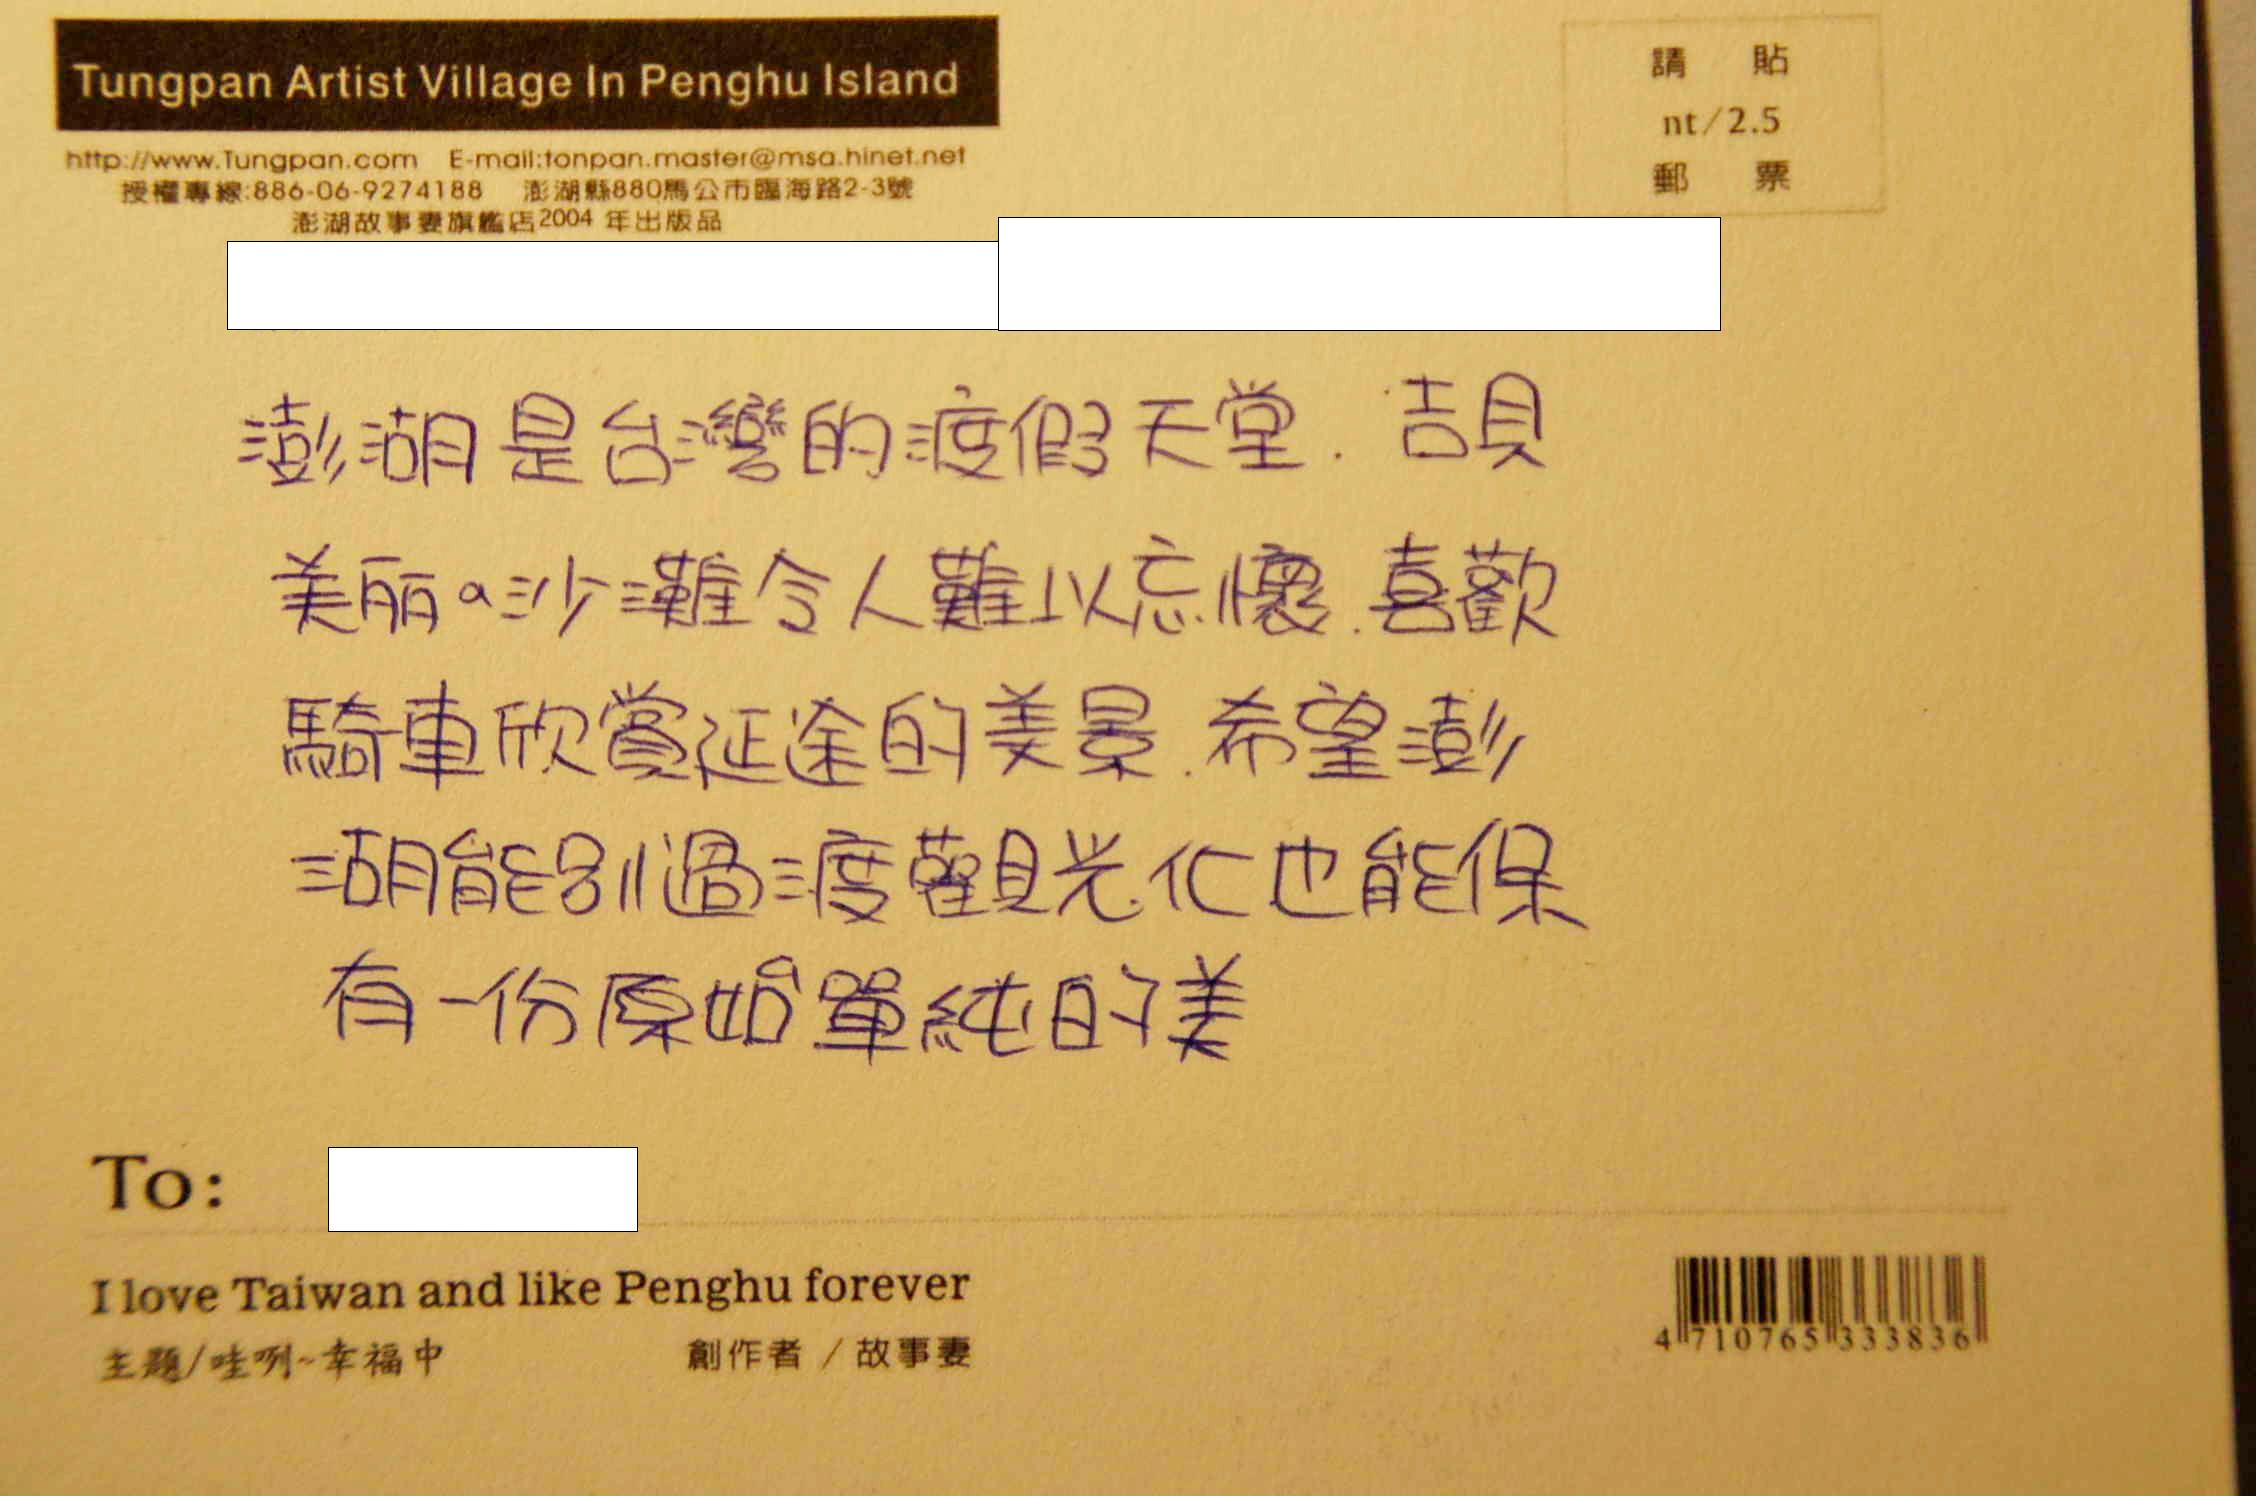 Tungpan Artist Village In Penghu Island
http://www.Tungpan.com E-mail:tonpan.master@msa.hinet.net
授權專線:886-06-9274188 澎湖縣880馬公市臨海路2-3號
澎湖故事妻旗艦店2004 年出版品
請 貼
nt/2.5
郵 票
澎湖是台灣的渡假天堂. 吉貝
美丽a沙灘令人難以忘懷.喜歡
騎車欣賞延途的美景.希望澎
湖能別過渡觀光化也能保
有一份原始單純的美
To:
I love Taiwan and like Penghu forever
主題/哇咧~幸福中 創作者 / 故事妻
4 710765 333836